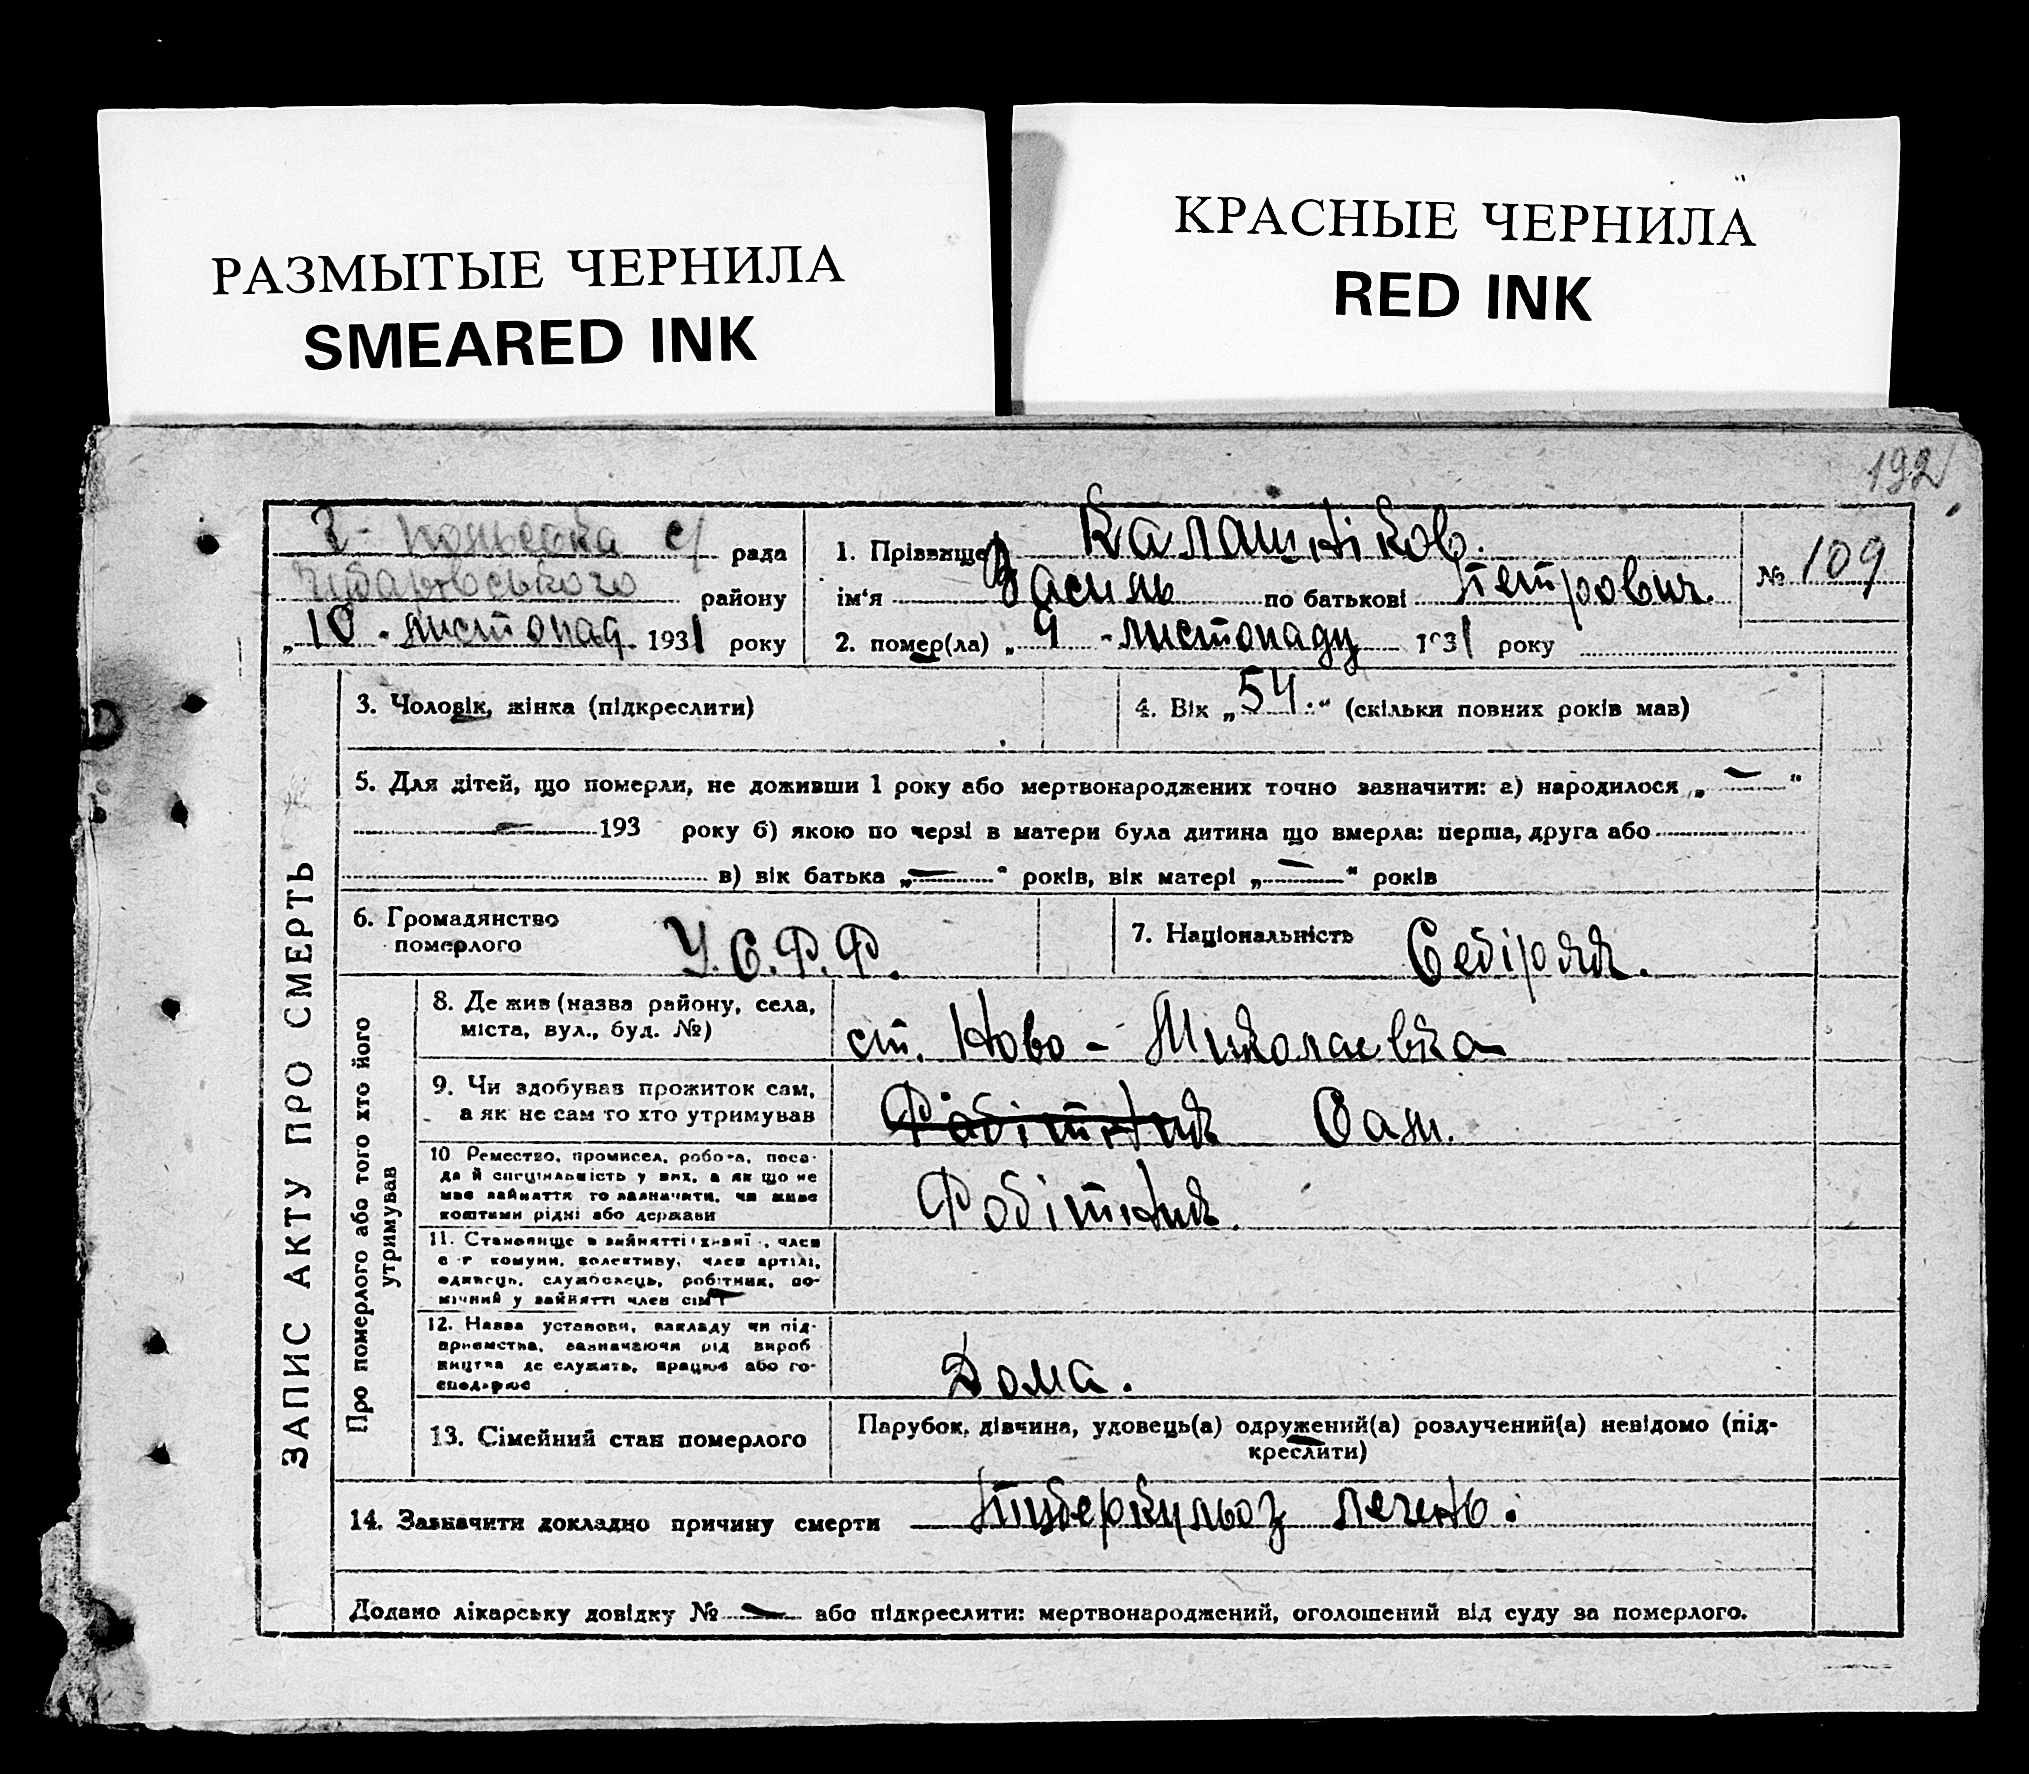 РАЗМЫТЫЕ ЧЕРНИЛА
SMEARED INK
КРАСНЫЕ ЧЕРНИЛА
RED INK
192
с/ рада
району
„10 - листопад 1931 року
1. Прізвище Калашніков.
ім‘я Василь по батькові Петрович.
2. помер(ла) „9 - листопаду 1931 року
№ 109
3. Чоловік, жінка (підкреслити)
4. Вік „54.“ (скільки повних років мав)
5. Для дітей, що померли, не доживши 1 року або мертвонароджених точно зазначити: а) народилося „—“
— 193 року б) якою по черзі в матери була дитина що вмерла: перша, друга або
в) вік батька „—“ років, вік матері „—“ років
6. Громадянство
померлого
У.С.Р.Р.
7. Національність
ЗАПИС АКТУ ПРО СМЕРТЬ
Про померлого або того хто його
утримував
8. Де жив (назва району, села,
міста, вул., буд. №)
ст. Ново - Миколаевка
9. Чи здобував прожиток сам,
а як не сам то хто утримував
Робітник Сам.
10 Ремество, промисел, робота, поса-
да й спеціяльність у них, а як що не
має зайняття то зазначити, чи живе
коштами рідні або держави
Робітник.
11. Становище в зайнятті: член
с-г комуни, колективу, член артілі,
одинець, службовець, робітник, по-
мічний у зайнятті член сім'ї
12. Назва установи, закладу чи під-
приємства, зазначаючи рід вироб
ництва де служить, працює або го-
сподарює
Дома.
13. Сімейний стан померлого
Парубок, дівчина, удовець(а) одружений(а) розлучений(а) невідомо (під-
креслити)
14. Зазначити докладно причину смерти Туберкульоз легень.
Додано лікарську довідку № — або підкреслити: мертвонароджений, оголошений від суду за померлого.